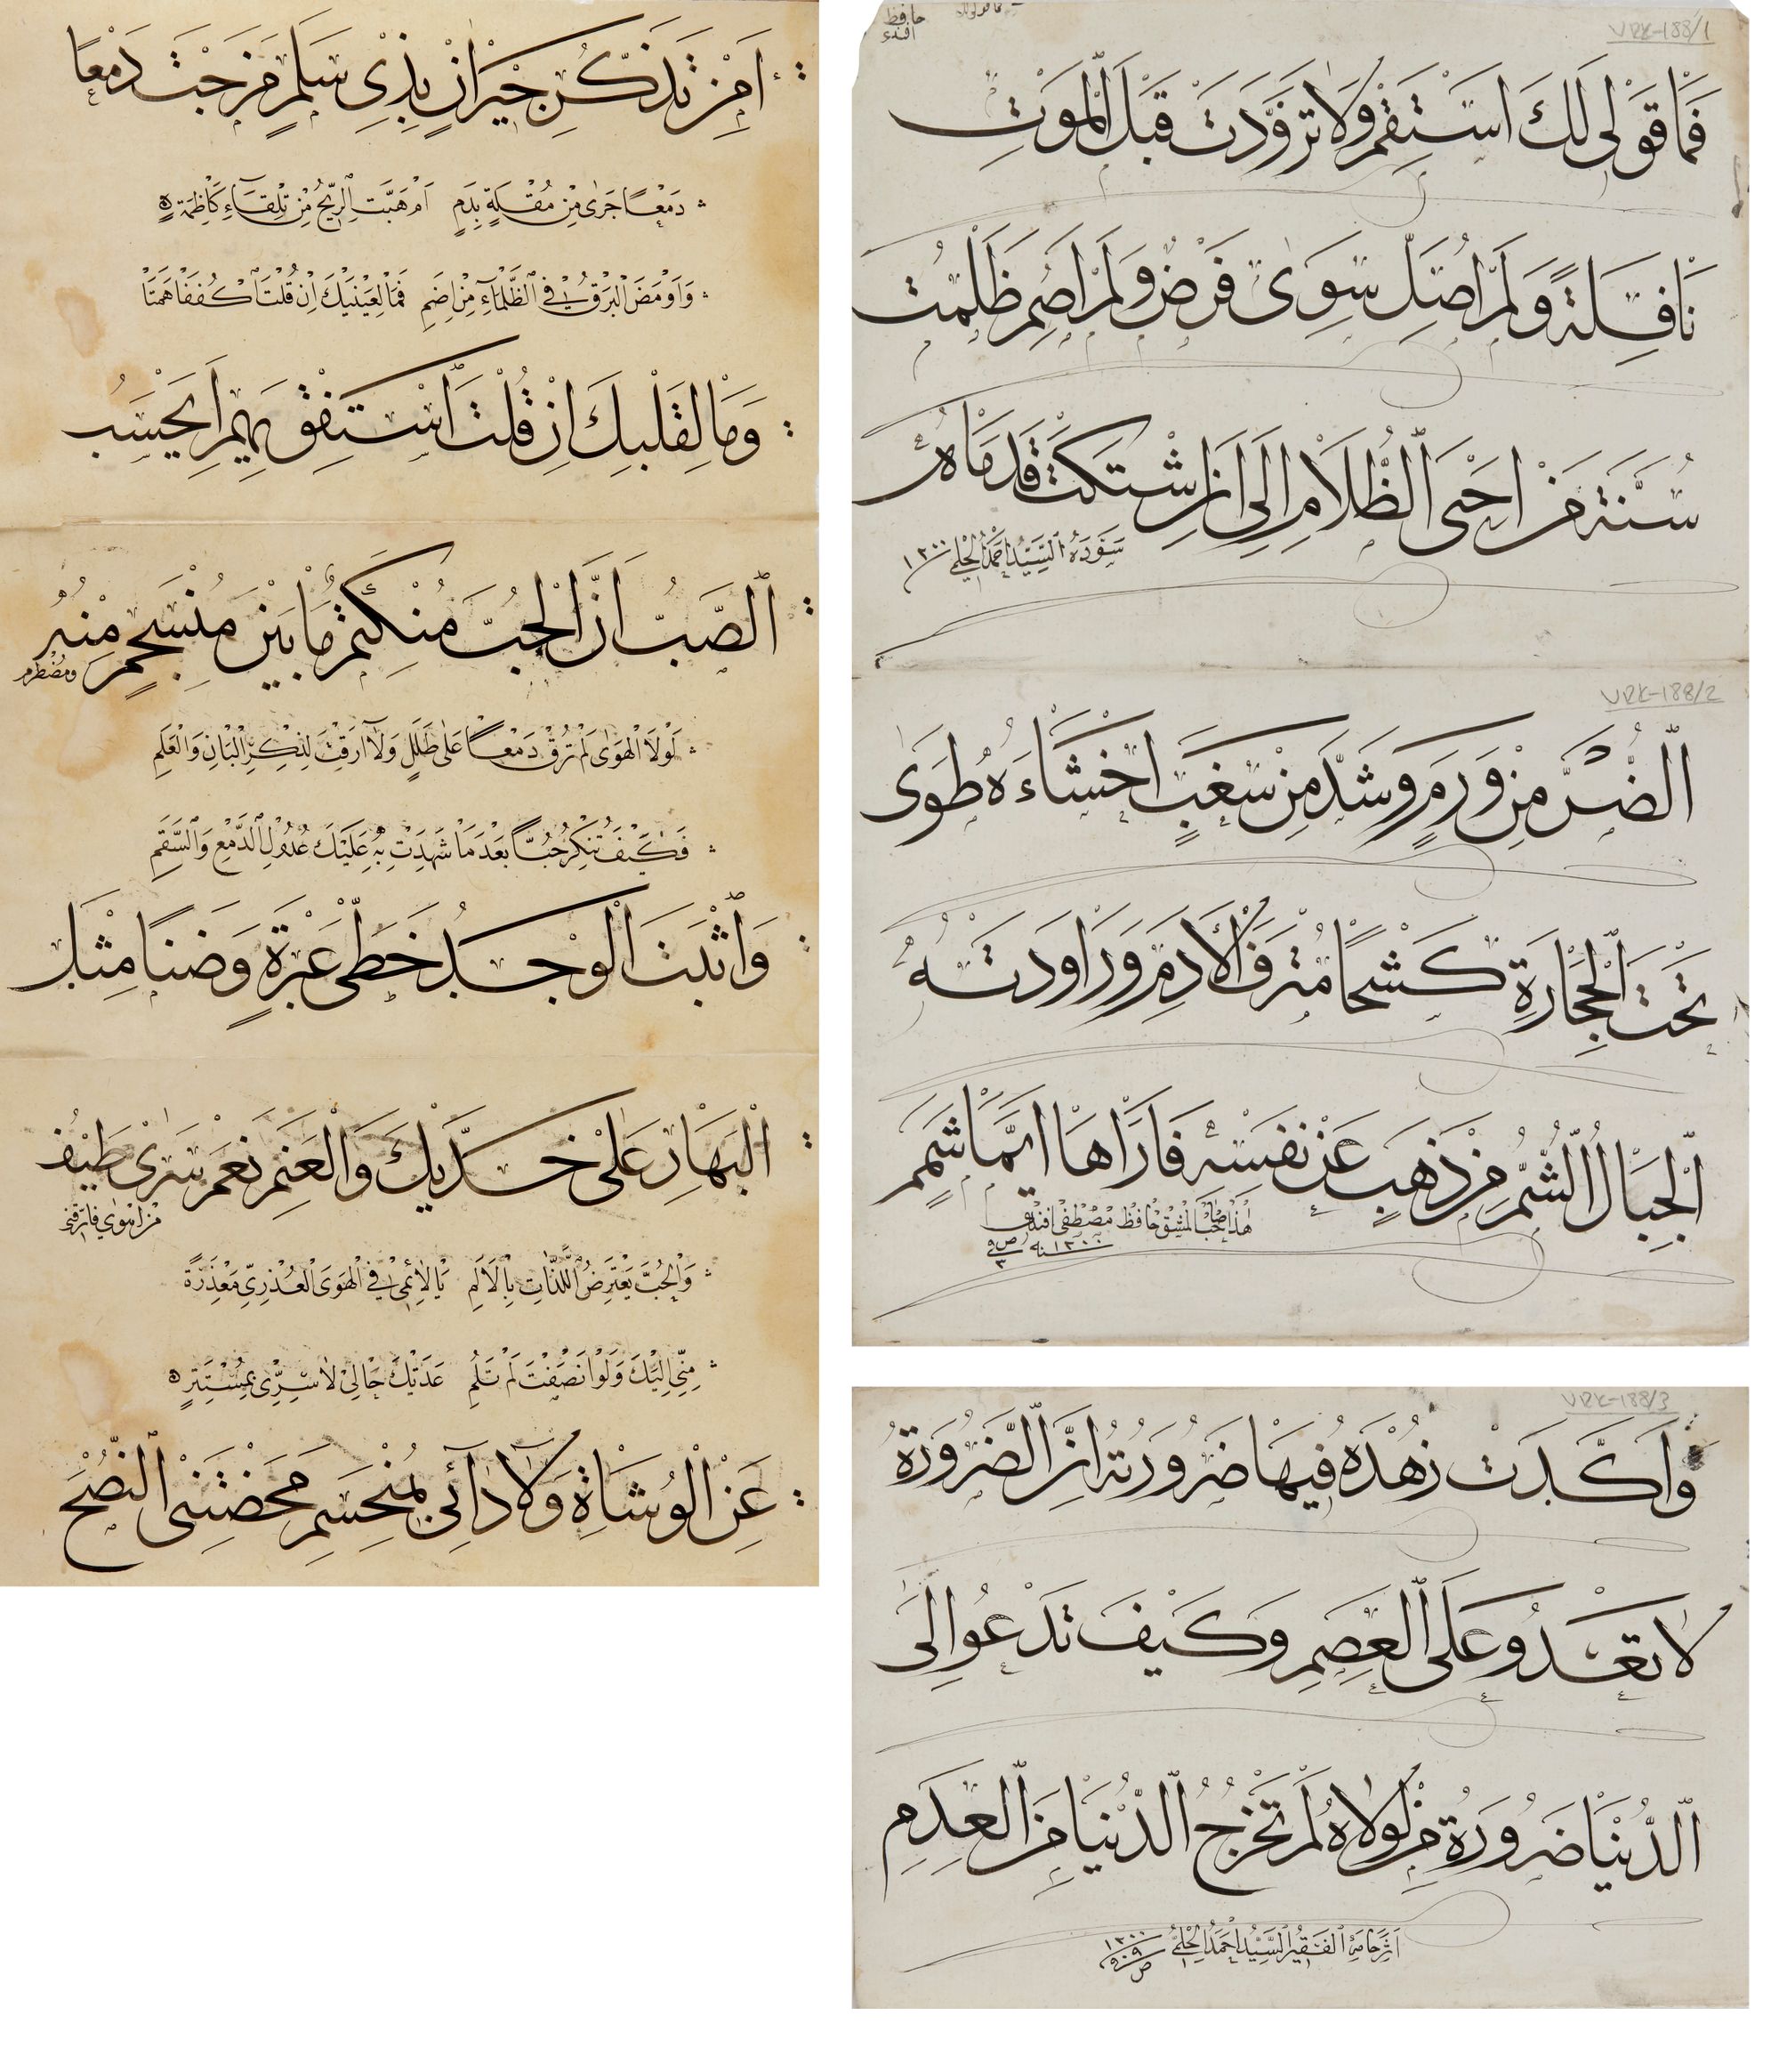 أَمِنْ تَذَكُّرِ جِيْرَانٍ بِذِى سَلَمٍ مَزَجْتَ دَمْعًا
دَمْعًا جَرٰى مِنْ مُقْلَةٍ بِدَمٍ اَمْ هَبَّتِ الرِّيْحُ مِنْ تِلْقَاءِ كَاظِمَةٍ
وَاَوْمَضَ الْبَرْقُ فِى الظَّلْمَاءِ مِنْ اِضَمِ فَمَا لِعَيْنَيْكَ اِنْ قُلْتَ اكْفُفَا هَمَتَا
وَمَا لِقَلْبِكَ اِنْ قُلْتَ اسْتَفِقْ يَهِمِ اَيَحْسَبُ
الصَّبُّ اَنَّ الْحُبَّ مُنْكَتِمٌ مَا بَيْنَ مُنْسَجِمٍ مِنْهُ
ومضطرم
لَوْلَا الْهَوٰى لَمْ تُرِقْ دَمْعًا عَلٰى طَلَلٍ وَلَا اَرِقْتَ لِذِكْرِ الْبَانِ وَالْعَلَمِ
فَكَيْفَ تُنْكِرُ حُبًّا بَعْدَ مَا شَهِدَتْ بِهِ عَلَيْكَ عُدُولُ الدَّمْعِ وَالسَّقَمِ
وَاَثْبَتَ الْوَجْدُ خَطَّىْ عَبْرَةٍ وَضَنًا مِثْلَ
الْبَهَارِ عَلٰى خَدَّيْكَ وَالْعَنَمِ نَعَمْ سَرٰى طَيْفُ
مَنْ اهْوٰى فارقنى
وَالْحُبُّ يَعْتَرِضُ اللَّذَّاتِ بِالْاَلَمِ يَا لَائِمِى فِى الْهَوَى الْعُذْرِىِّ مَعْذِرَةً
مِنِّى اِلَيْكَ وَلَوْ اَنْصَفْتَ لَمْ تَلُمِ عَدَتْكَ حَالِىَ لَا سِرِّى بِمُسْتَتِرٍ
عَنِ الْوُشَاةِ وَلَا دَائِى بِمُنْحَسِمِ مَحَضْتَنِى النُّصْحَ
حافظ
افندى
VRK-188/1
فَمَا قَوْلِى لَكَ اسْتَقِمْ وَلَا تَزَوَّدْتُ قَبْلَ الْمَوْتِ
نَافِلَةً وَلَمْ اُصَلِّ سِوٰى فَرْضٍ وَلَمْ اَصُمِ ظَلَمْتُ
سُنَّةَ مَنْ اَحْيَى الظَّلَامَ اِلَى اَنِ اشْتَكَتْ قَدَمَاهُ
سَوَّدَهُ السَّيِّدُ اَحْمَدُ ١٣٠٠
VRK-188/2
الضُّرَّ مِنْ وَرَمٍ وَشَدَّ مِنْ سَغَبٍ اَحْشَاءَهُ وَطَوٰى
تَحْتَ الْحِجَارَةِ كَشْحًا مُتْرَفَ الْاَدَمِ وَرَاوَدَتْهُ
الْجِبَالُ الشُّمُّ مِنْ ذَهَبٍ عَنْ نَفْسِهِ فَاَرَاهَا اَيَّمَا شَمَمِ
هٰذَا صَاحِبُ الْمَشْقِ حَافِظْ مُصْطَفٰى اَفَنْدِى
سنه ١٣٠٠ ص
VRK-188/3
وَاَكَّدَتْ زُهْدَهُ فِيهَا ضَرُورَتُهُ اِنَّ الضَّرُورَةَ
لَا تَعْدُو عَلَى الْعِصَمِ وَكَيْفَ تَدْعُو اِلَى
الدُّنْيَا ضَرُورَةُ مَنْ لَوْلَاهُ لَمْ تَخْرُجِ الدُّنْيَا مِنَ الْعَدَمِ
اَثَرُ خَامَهِ الْفَقِيرِ السَّيِّدُ اَحْمَدُ ١٣٠٠